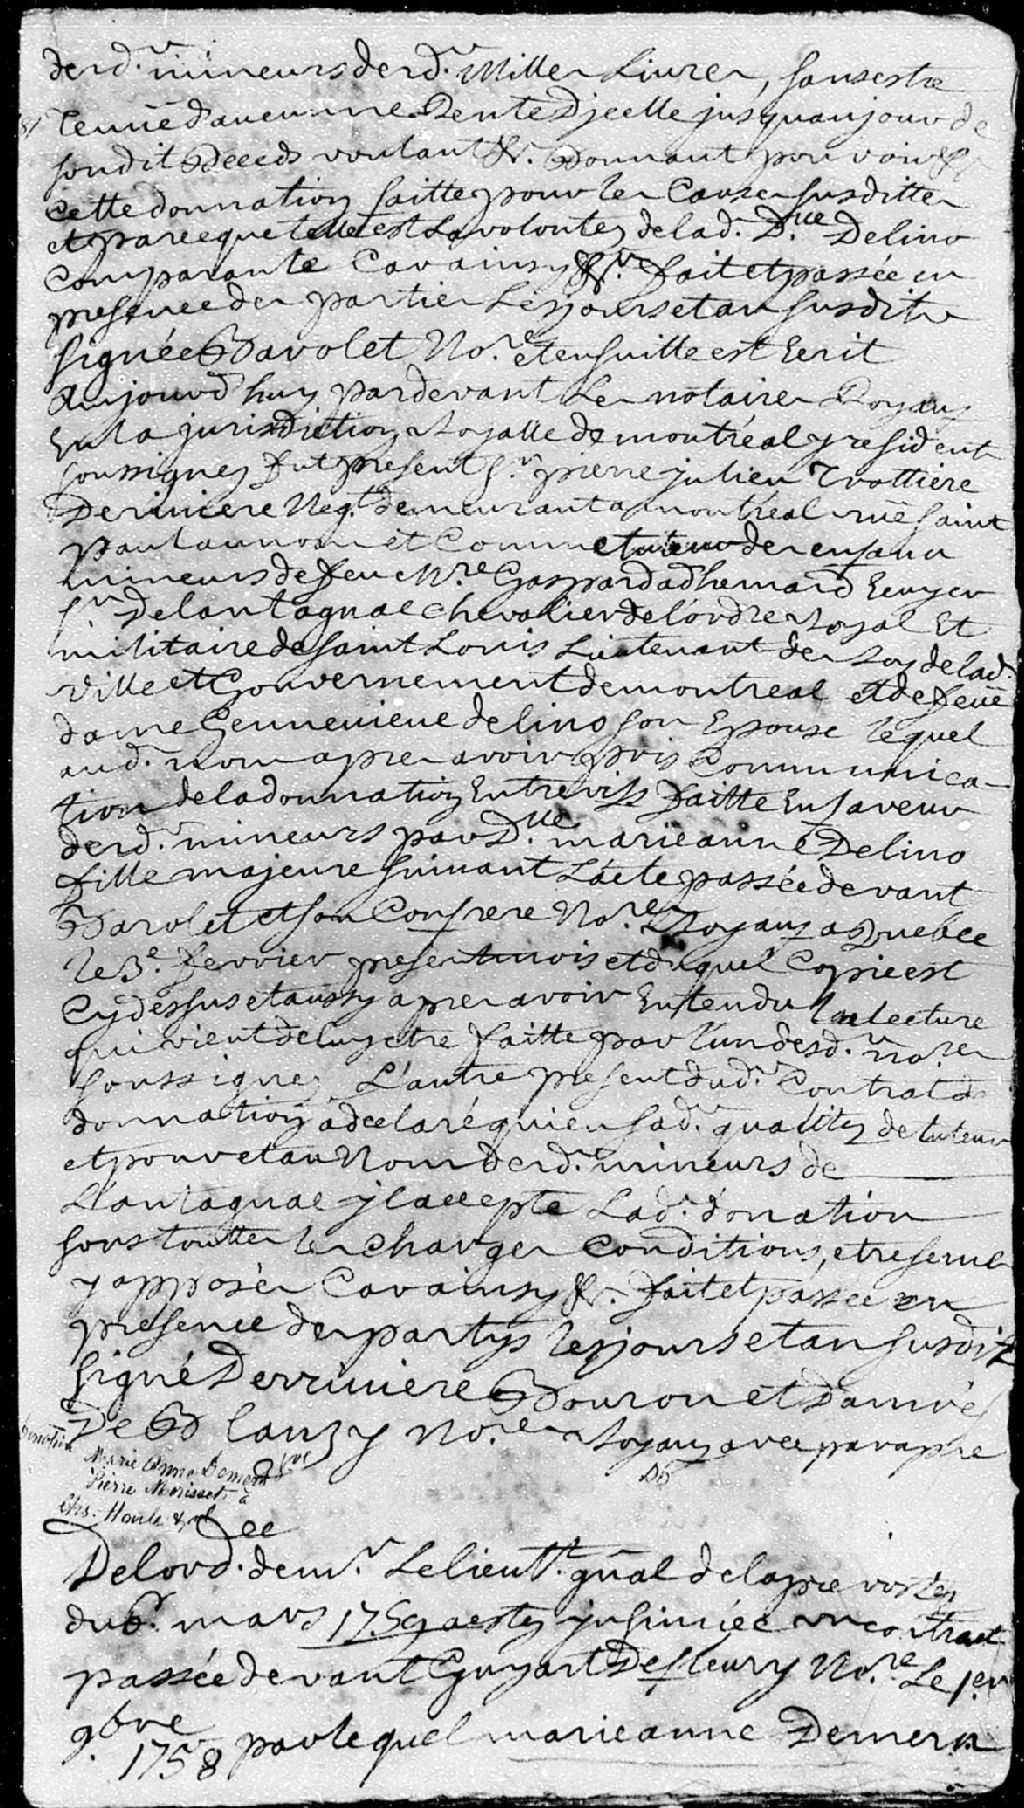 desd. mineurs desd. Mille Livres, sans estre
Tenuë d'aucunne Rente d'jcelle jusquau jour de
sondit Deceds voulant &c. Donnant pouvoir &c
cette donnation faitte pour les Causes susdittes
et parceque telle est La volontez de lad. Dlle Delino
Comparante Car ainsy &c. fait et passée en
presence des parties Les jours et an susdits
signée Barolet No.re et ensuitte est Ecrit
Aujourd'huy pardevant Les notaires Royaux
En la jurisdiction Royalle de montréal y resident
soussignez fut present Sr. pierre julien Trottière
Deriviere Neg.t demeurant a montréal ruë saint
paul au nom et Comme tuteur des enfans
mineurs de feu M.re Gaspard adhemard Ecuyer
Sr. Delantagnac chevalier de l'ordre Royal Et
militaire de saint Louis Lieutenant de Roy de lad.
Ville et Gouvernement de montreal et de feuë
dame Gennevieve delino son Epouse lequel
aud. nom apres avoir pris Communica-
tion de la donnation Entrevifs faitte En faveur
desd. mineurs par Dlle marieanne Delino
fille majeure suivant L'acte passée devant
Barolet et son Confrere No.res Royaux a Quebec
le 3e. fevrier present mois et duquel Copie est
Cy dessus et aussy apres avoir Entendu la lecture
qui vient de luy etre faitte par l'un desd. no.res
soussignez L'autre present dud. Contrat de
donnation a declaré qu'en sad. qualitez de tuteur
et pour et au Nom desd. mineurs de
L'antagnac jl accepte Lad. donation
sous toutes les charges Conditions, et reserves
y apposées Car ainsy &c. fait et passée en
presence des partys les jours et an susdits
signé Deriviere Bouron et Danré
De Blanzy No.res Royaux avec paraphe
Donation
Marie Anne Demers
Pierre Morisset à
Chs. Houle &
Delord. de mr. Le lieutt. gñal de la prevostez
du 6. mars 1759 a estez jnsinuée un contract
passée devant Guyart De fleury No.re Le 1er
9bre 1758 par lequel marieanne Demers